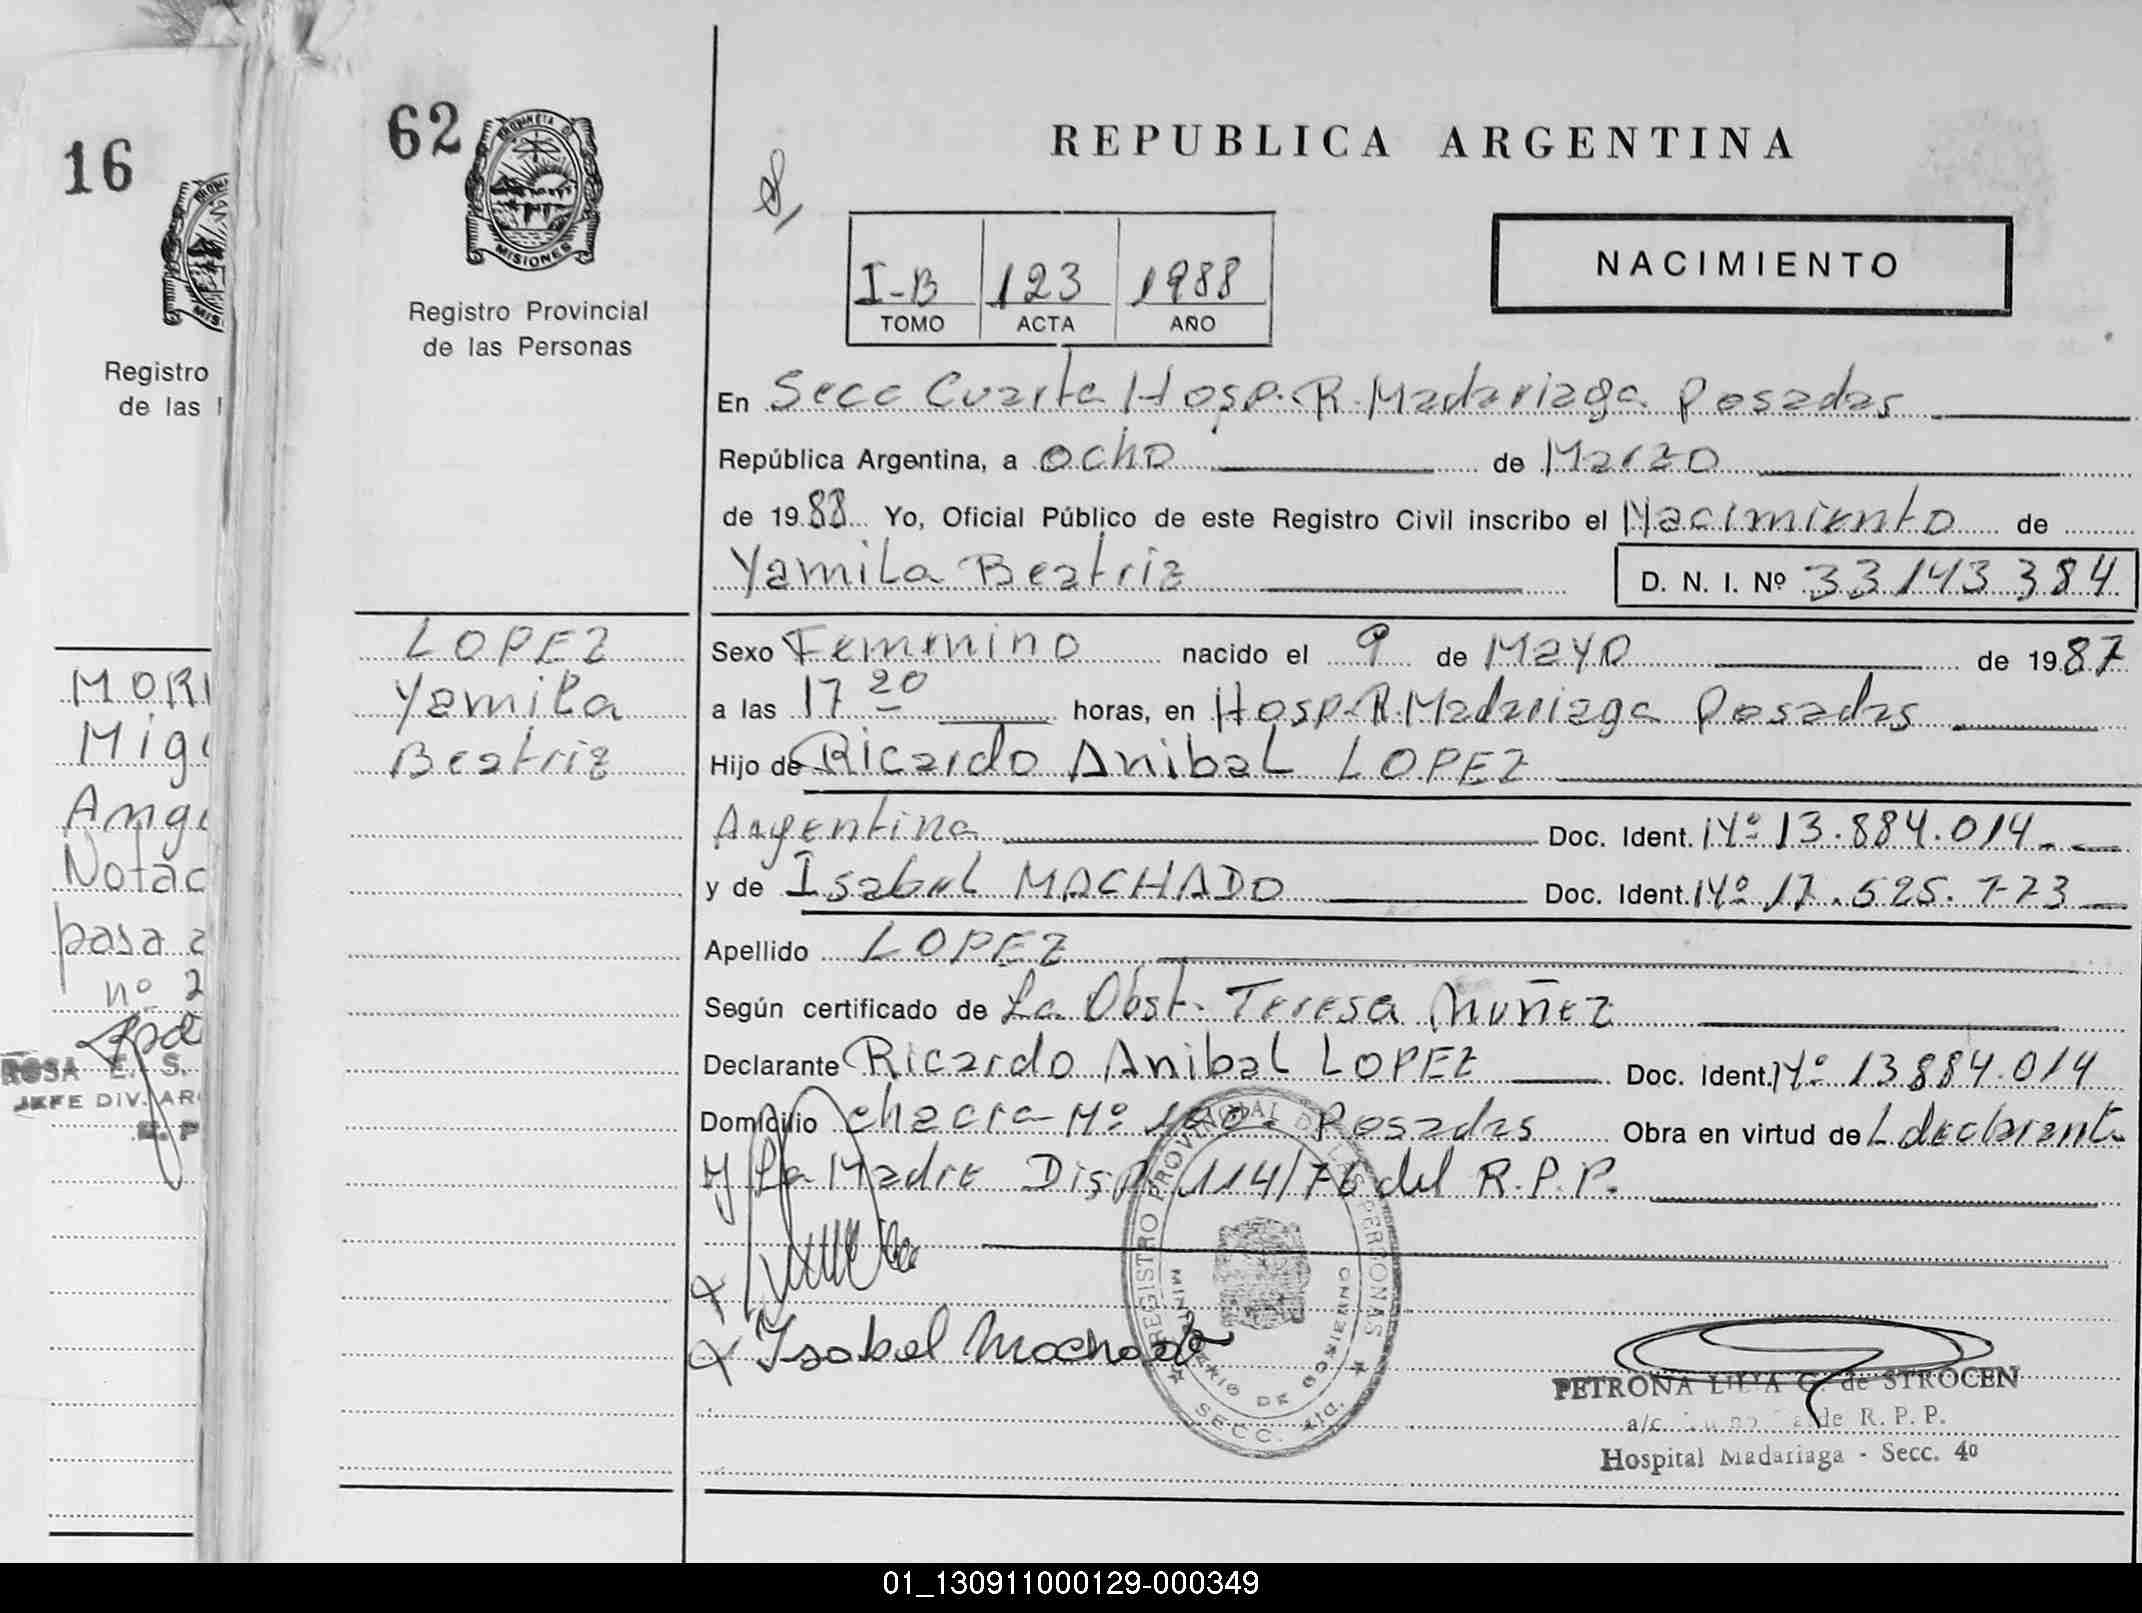 16
Registro
de las
MORI
Mig
Ang
Notac
pasa a
nº 2
ROSA E. S.
JEFE DIV. AR
62
PROVINCIA DE
MISIONES
Registro Provincial
de las Personas
LOPEZ
Yamila
Beatriz
REPUBLICA ARGENTINA
NACIMIENTO
I-B 123 1988
TOMO ACTA AÑO
En Secc Cuarta Hosp. R. Madariaga Posadas
República Argentina, a ocho de Marzo
de 1988 Yo, Oficial Público de este Registro Civil inscribo el Nacimiento de
Yamila Beatriz D. N. I. Nº 33143384
Sexo Femenino nacido el 9 de Mayo de 1987
a las 17 20 horas, en Hosp. R. Madariaga Posadas
Hijo de Ricardo Anibal LOPEZ
Argentina Doc. Ident. Nº 13.884.014.
y de Isabel MACHADO Doc. Ident. Nº 17.525.773
Apellido LOPEZ
Según certificado de La Obst. Teresa Nuñez
Declarante Ricardo Anibal LOPEZ Doc. Ident. Nº 13884.014
Domicilio chacra Nº 190. Posadas Obra en virtud de L declarant.
y La Madre Disp. 114/76 del R.P.P.
REGISTRO PROVINCIAL DE LAS PERSONAS
MINISTERIO DE GOBIERNO
SECC. 4ta.
Isabel Machado
PETRONA LILIA C. de STROCEN
a/c de R. P. P.
Hospital Madariaga - Secc. 4º
01_130911000129-000349